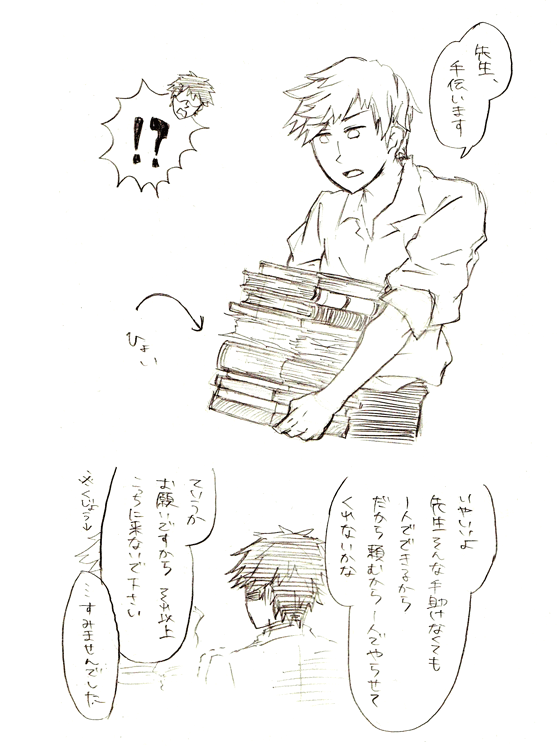 先生、
手伝います
!?
ひょい
いやいいよ
先生そんな手助けなくても
一人でできるから
だから頼むから一人でやらせて
くれないかな
ていうか
お願いですから それ以上
こっちに来ないで下さい
…すみませんでした